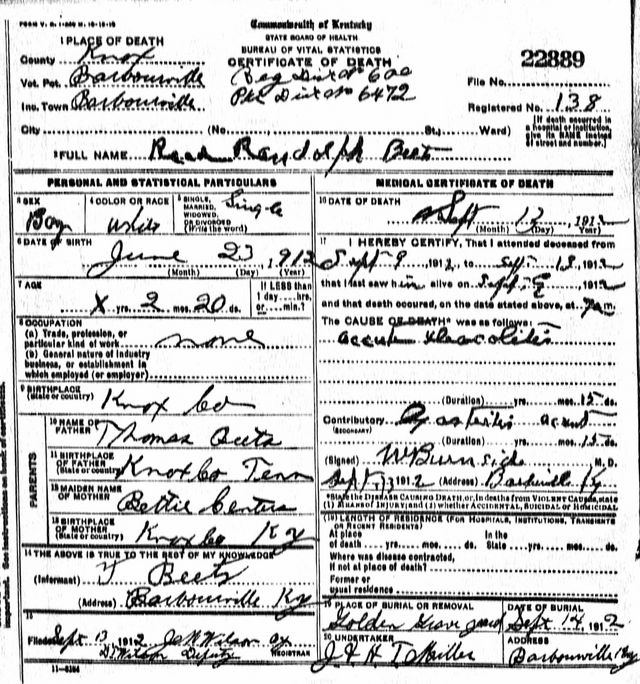 FORM V. S. 1-
Commonwealth of Kentucky
STATE BOARD OF HEALTH
BUREAU OF VITAL STATISTICS
CERTIFICATE OF DEATH
1 PLACE OF DEATH
County Knox
Vot. Pct. Barbourville
Inc. Town Barbourville
Reg Dist No 600
Pri Dist No 6472
22889
File No.
Registered No. 138
City (No. St.; Ward)
[If death occurred in a hospital or institution, give its NAME instead of street and number.]
2 FULL NAME Randolph Beets
PERSONAL AND STATISTICAL PARTICULARS
3 SEX
Boy
4 COLOR OR RACE
White
5 SINGLE, MARRIED, WIDOWED, OR DIVORCED (Write the word)
Single
6 DATE OF BIRTH
June 23, 1912
(Month) (Day) (Year)
7 AGE
X yrs. 2 mos. 20 ds.
If LESS than 1 day .... hrs. or .... min.?
8 OCCUPATION
(a) Trade, profession, or particular kind of work
none
(b) General nature of industry business, or establishment in which employed (or employer)
9 BIRTHPLACE (State or country)
Knox Co
PARENTS
10 NAME OF FATHER
Thomas Beets
11 BIRTHPLACE OF FATHER (State or country)
Knox Co Tenn
12 MAIDEN NAME OF MOTHER
Bettie Centers
13 BIRTHPLACE OF MOTHER (State or country)
Knox Co Ky
14 THE ABOVE IS TRUE TO THE BEST OF MY KNOWLEDGE
(Informant) T Beets
(Address) Barbourville Ky
15
Filed Sept 13 1912 J M Wilson
Wilson Deputy REGISTRAR
11-
MEDICAL CERTIFICATE OF DEATH
16 DATE OF DEATH
Sept 13 1912
(Month) (Day) (Year)
17 I HEREBY CERTIFY, That I attended deceased from
Sept 9 1912, to Sept 13 1912
that I last saw him alive on Sept 1912
and that death occurred, on the date stated above, at 7 a m.
The CAUSE OF DEATH* was as follows:
(Duration) yrs. mos. 15 ds.
Contributory
(SECONDARY)
(Duration) yrs. mos. 15 ds.
(Signed) W Burnside M. D.
Sept 13 1912 (Address) Barbourville Ky
*State the DISEASE CAUSING DEATH, or, in deaths from VIOLENT CAUSES, state (1) MEANS OF INJURY; and (2) whether ACCIDENTAL, SUICIDAL or HOMICIDAL
18 LENGTH OF RESIDENCE (FOR HOSPITALS, INSTITUTIONS, TRANSIENTS OR RECENT RESIDENTS)
At place of death yrs. mos. ds. In the State yrs. mos. ds.
Where was disease contracted, if not at place of death?
Former or usual residence
19 PLACE OF BURIAL OR REMOVAL
Golden Grave yard
DATE OF BURIAL
Sept 14, 1912
20 UNDERTAKER
J & H T Miller
ADDRESS
Barbourville Ky